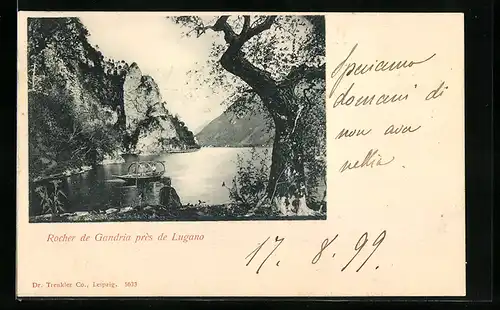 Speriamo
domani di
non aver
nebbia.
Rocher de Gandria près de Lugano
17. 8. 99
Dr. Trenkler Co., Leipzig. 5613